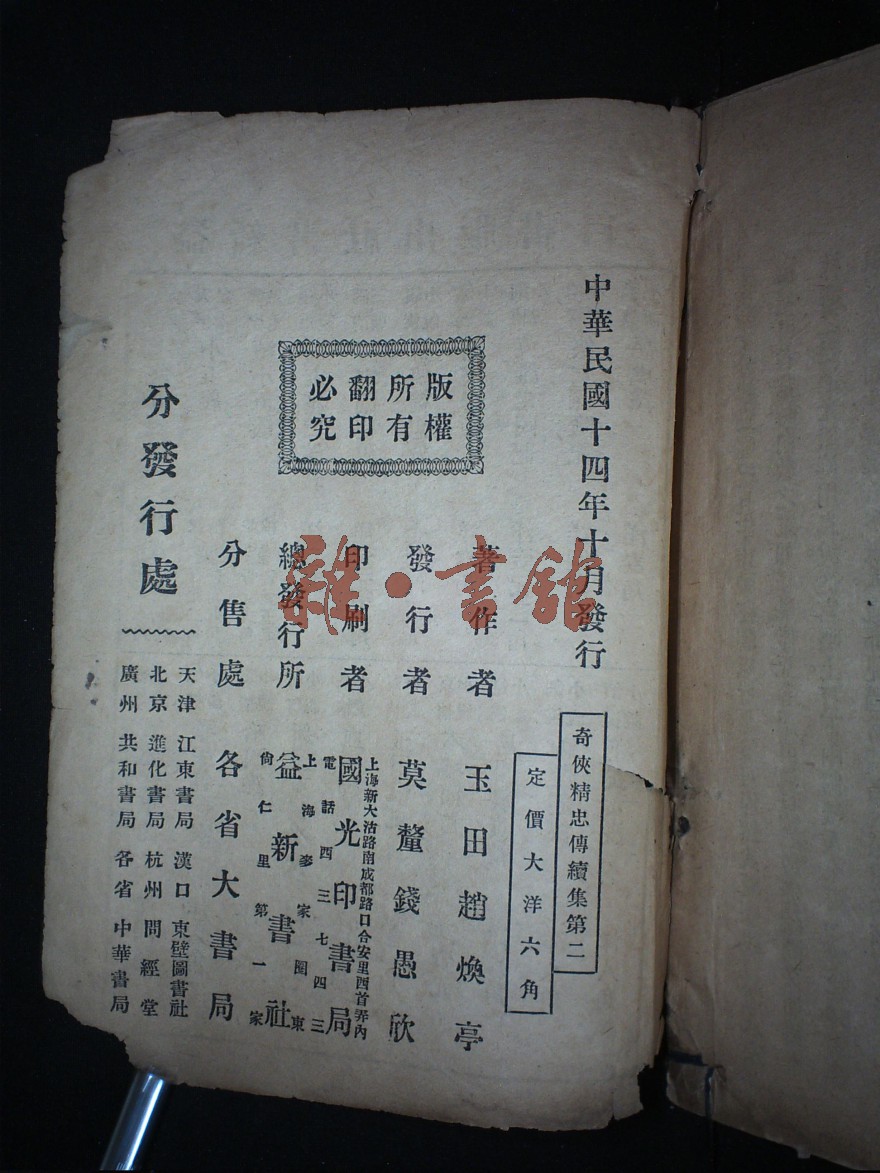 中華民國十四年十月發行
奇俠精忠傳續集第二
定價大洋六角
版權
所有
翻印
必究
著作者 玉田趙煥亭
發行者 莫釐錢愚欣
印刷者 國光印書局
上海新大沽路南成都路口合安里西首弄內
電話四三七四三
總發行所 益新書社
上海麥家圈東
尚仁里第一家
分售處 各省大書局
分發行處
天津 江東書局 漢口 東壁圖書社
北京 進化書局 杭州 問經堂
廣州 共和書局 各省 中華書局
雜·書館